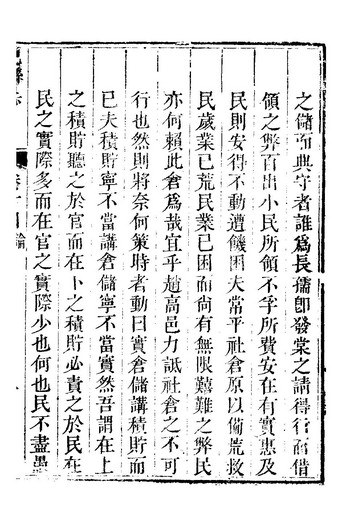 之儲而典守者誰爲長孺卽發棠之請得行而借
領之弊百出小民所領不孚所費安在有實惠及
民則安得不動遭饑困夫常平社倉原以備荒救
民歲業已荒民業已困而尚有無限艱難之弊民
亦何賴此倉爲哉宜乎趙高邑力詆社倉之不可
行也然則將奈何策時者動曰實倉儲講積貯而
已夫積貯寧不當講倉儲寧不當實然吾謂在上
之積貯聽之於官而在下之積貯必責之於民在
民之實際多而在官之實際少也何也民不盡愚